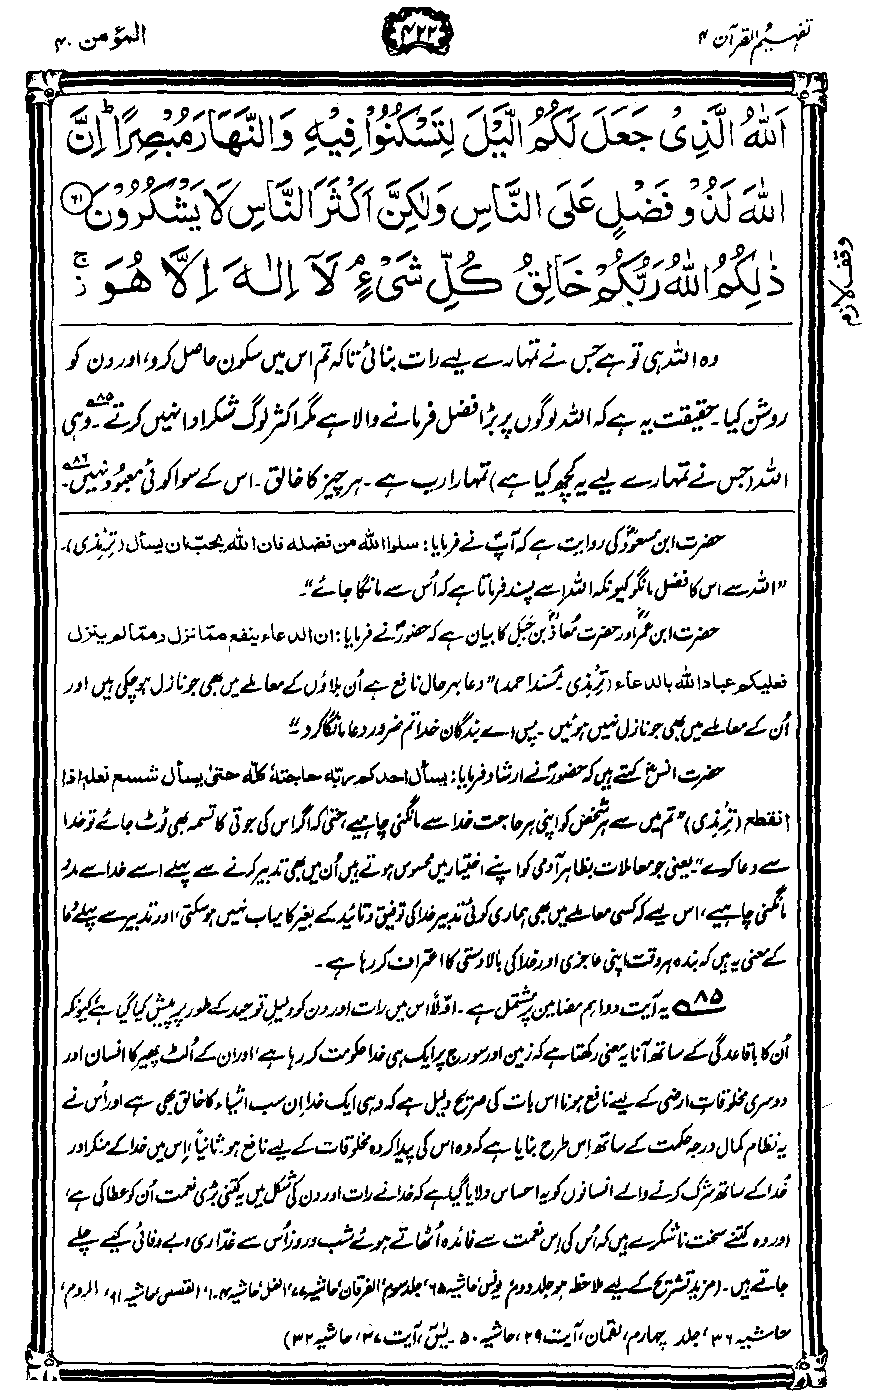 تفہیم القرآن ۴
۴۲۲
المؤمن ۴۰
اَللّٰهُ الَّذِیْ جَعَلَ لَكُمُ الَّیْلَ لِتَسْكُنُوْا فِیْهِ وَالنَّهَارَ مُبْصِرًا ؕ اِنَّ
اللّٰهَ لَذُوْ فَضْلٍ عَلَی النَّاسِ وَلٰكِنَّ اَكْثَرَ النَّاسِ لَا یَشْكُرُوْنَ ﴿۶۱﴾
ذٰلِكُمُ اللّٰهُ رَبُّكُمْ خَالِقُ كُلِّ شَیْءٍ ۘ لَاۤ اِلٰهَ اِلَّا هُوَ ۚ
وقف لازم
وہ اللہ ہی تو ہے جس نے تمہارے لیے رات بنائی تاکہ تم اس میں سکون حاصل کرو، اور دن کو
روشن کیا۔ حقیقت یہ ہے کہ اللہ لوگوں پر بڑا فضل فرمانے والا ہے مگر اکثر لوگ شکر ادا نہیں کرتے۔۸۵ وہی
اللہ (جس نے تمہارے لیے یہ کچھ کیا ہے) تمہارا رب ہے۔ ہر چیز کا خالق۔ اس کے سوا کوئی معبود نہیں۔۸۶
حضرت ابن مسعودؓ کی روایت ہے کہ آپؐ نے فرمایا: سلوا الله من فضله فان الله یحب ان یسأل (ترمذی)۔
”اللہ سے اس کا فضل مانگو کیونکہ اللہ اسے پسند فرماتا ہے کہ اُس سے مانگا جائے“۔
حضرت ابن عمرؓ اور حضرت مُعاذؓ بن جَبَل کا بیان ہے کہ حضورؐ نے فرمایا: ان الدعاء ینفع مما نزل و مما لم ینزل
فعلیکم عباد الله بالدعاء (ترمذی، مُسند احمد) ”دعا بہرحال نافع ہے اُن بلاؤں کے معاملے میں بھی جو نازل ہو چکی ہیں اور
اُن کے معاملے میں بھی جو نازل نہیں ہوئیں۔ پس اے بندگان خدا تم ضرور دعا مانگا کرو“۔
حضرت انسؓ کہتے ہیں کہ حضورؐ نے ارشاد فرمایا: یسأل احدکم ربّه حاجته کلّه حتیٰ یسأل شسع نعله اذا
انقطع (ترمذی) ”تم میں سے ہر شخص کو اپنی ہر حاجت خدا سے مانگنی چاہیے، حتیٰ کہ اگر اس کی جوتی کا تسمہ بھی ٹوٹ جائے تو خدا
سے دعا کرے“۔ یعنی جو معاملات بظاہر آدمی کو اپنے اختیار میں محسوس ہوتے ہیں اُن میں بھی تدبیر کرنے سے پہلے اسے خدا سے مدد
مانگنی چاہیے، اس لیے کہ کسی معاملے میں بھی ہماری کوئی تدبیر خدا کی توفیق و تائید کے بغیر کامیاب نہیں ہو سکتی، اور تدبیر سے پہلے دُعا
کے معنی یہ ہیں کہ بندہ ہر وقت اپنی عاجزی اور خدا کی بالادستی کا اعتراف کر رہا ہے۔
۸۵ یہ آیت دو اہم مضامین پر مشتمل ہے۔ اوّلاً اس میں رات اور دن کو دلیل توحید کے طور پر پیش کیا گیا ہے، کیونکہ
اُن کا باقاعدگی کے ساتھ آنا یہ معنی رکھتا ہے کہ زمین اور سورج پر ایک ہی خدا حکومت کر رہا ہے، اور ان کے اُلٹ پھیر کا انسان اور
دوسری مخلوقاتِ ارضی کے لیے نافع ہونا اس بات کی صریح دلیل ہے کہ وہی ایک خدا اِن سب اشیاء کا خالق بھی ہے اور اُس نے
یہ نظام کمال درجہ حکمت کے ساتھ اِس طرح بنایا ہے کہ وہ اس کی پیدا کردہ مخلوقات کے لیے نافع ہو۔ ثانیاً، اِس میں خدا کے منکر اور
خدا کے ساتھ شرک کرنے والے انسانوں کو یہ احساس دلایا گیا ہے کہ خدا نے رات اور دن کی شکل میں یہ کتنی بڑی نعمت اُن کو عطا کی ہے،
اور وہ کتنے سخت ناشکرے ہیں کہ اُس کی اِس نعمت سے فائدہ اُٹھاتے ہوئے شب و روز اُس سے غدّاری و بے وفائی کیے چلے
جاتے ہیں۔ (مزید تشریح کے لیے ملاحظہ ہو جلد دوم، یونس، حاشیہ ۶۵، جلد سوم، الفرقان، حاشیہ ۷۷، النمل، حاشیہ ۱۰۴، القصص، حاشیہ ۹۱، الروم،
حاشیہ ۳۶، جلد چہارم، لقمان، آیت ۲۹، حاشیہ ۵۰۔ یٰسٓ، آیت ۳۷، حاشیہ ۳۲)